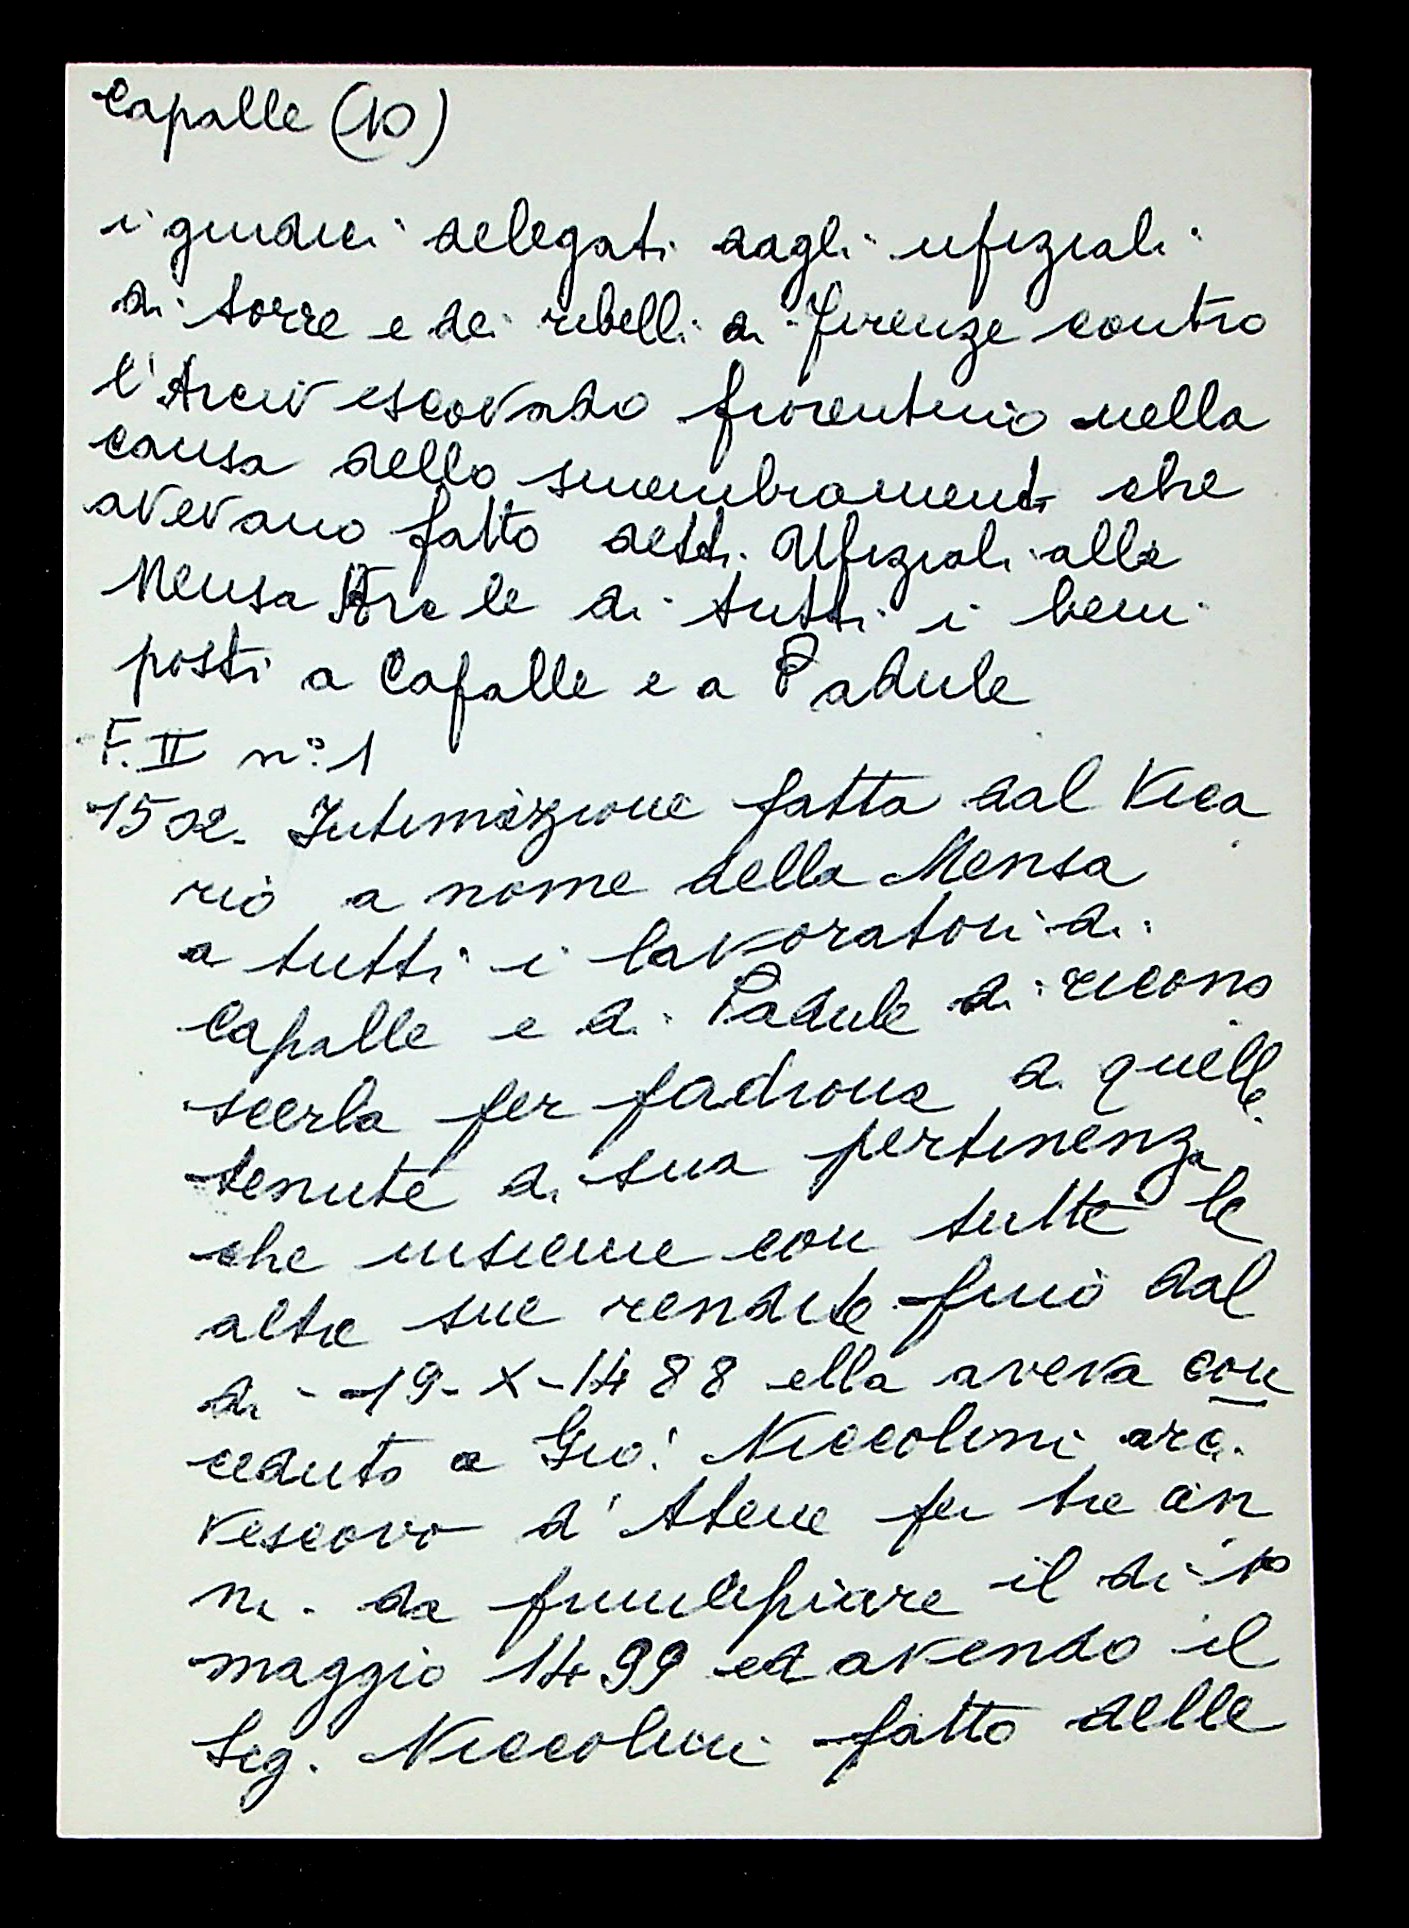 Capalle (10)
i giudici delegati dagli ufiziali
di torre e dei ribelli di Firenze contro
l'Arcivescovado fiorentino nella
causa dello smembramenti che
avevano fatto detti Ufiziali alla
Mensa Arcle di tutti i beni
posti a Capalle e a Padule
F. II n° 1
1502. Intimazione fatta dal Vica
rio a nome della Mensa
a tutti i lavoratori di
Capalle e di Padule di ricono
scerla per padrona di quelle
tenute di sua pertinenza
che insieme con tutte le
altre sue rendite fino dal
di 19-X-1488 ella aveva con
ceduto a Gio: Niccolini arci
vescovo d'Atene per tre an
ni da il di 10
maggio 1499 ed avendo il
Sig. Niccolini fatto delle